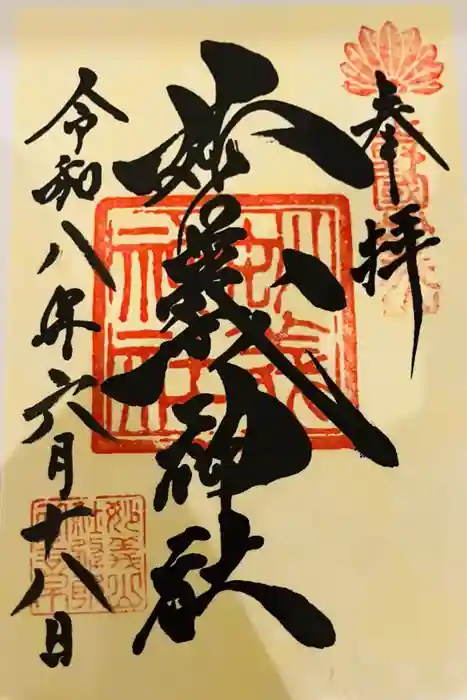 奉拝
妙義神社
令和八年六月十八日